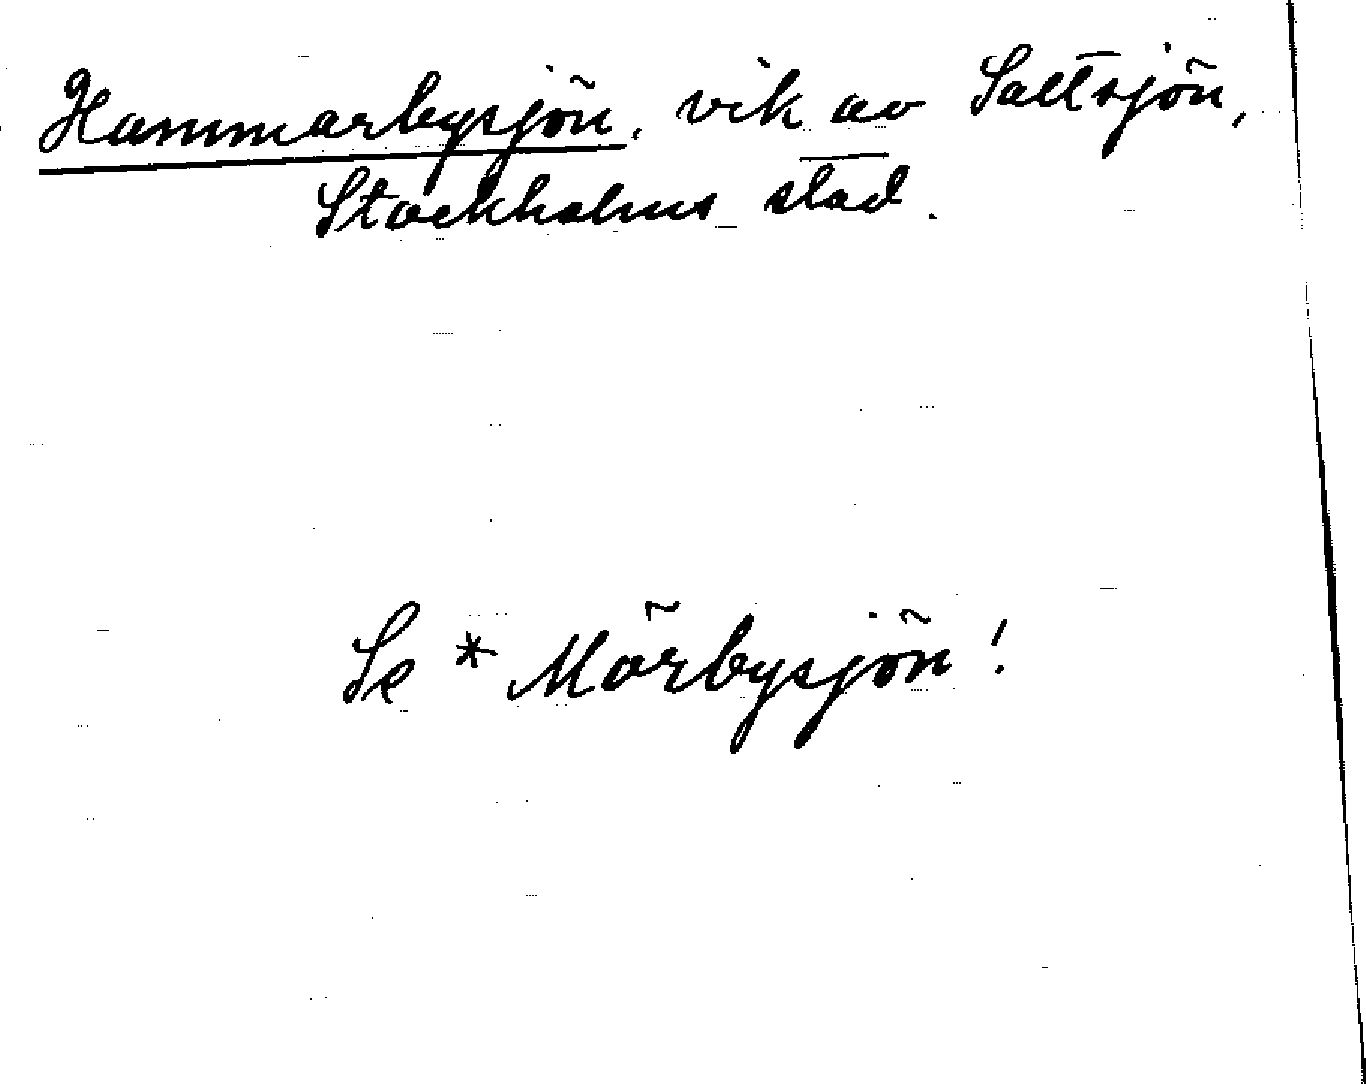 Hammarbysjön, vik av Saltsjön,
Stockholms stad.
Se * Mörbysjön!